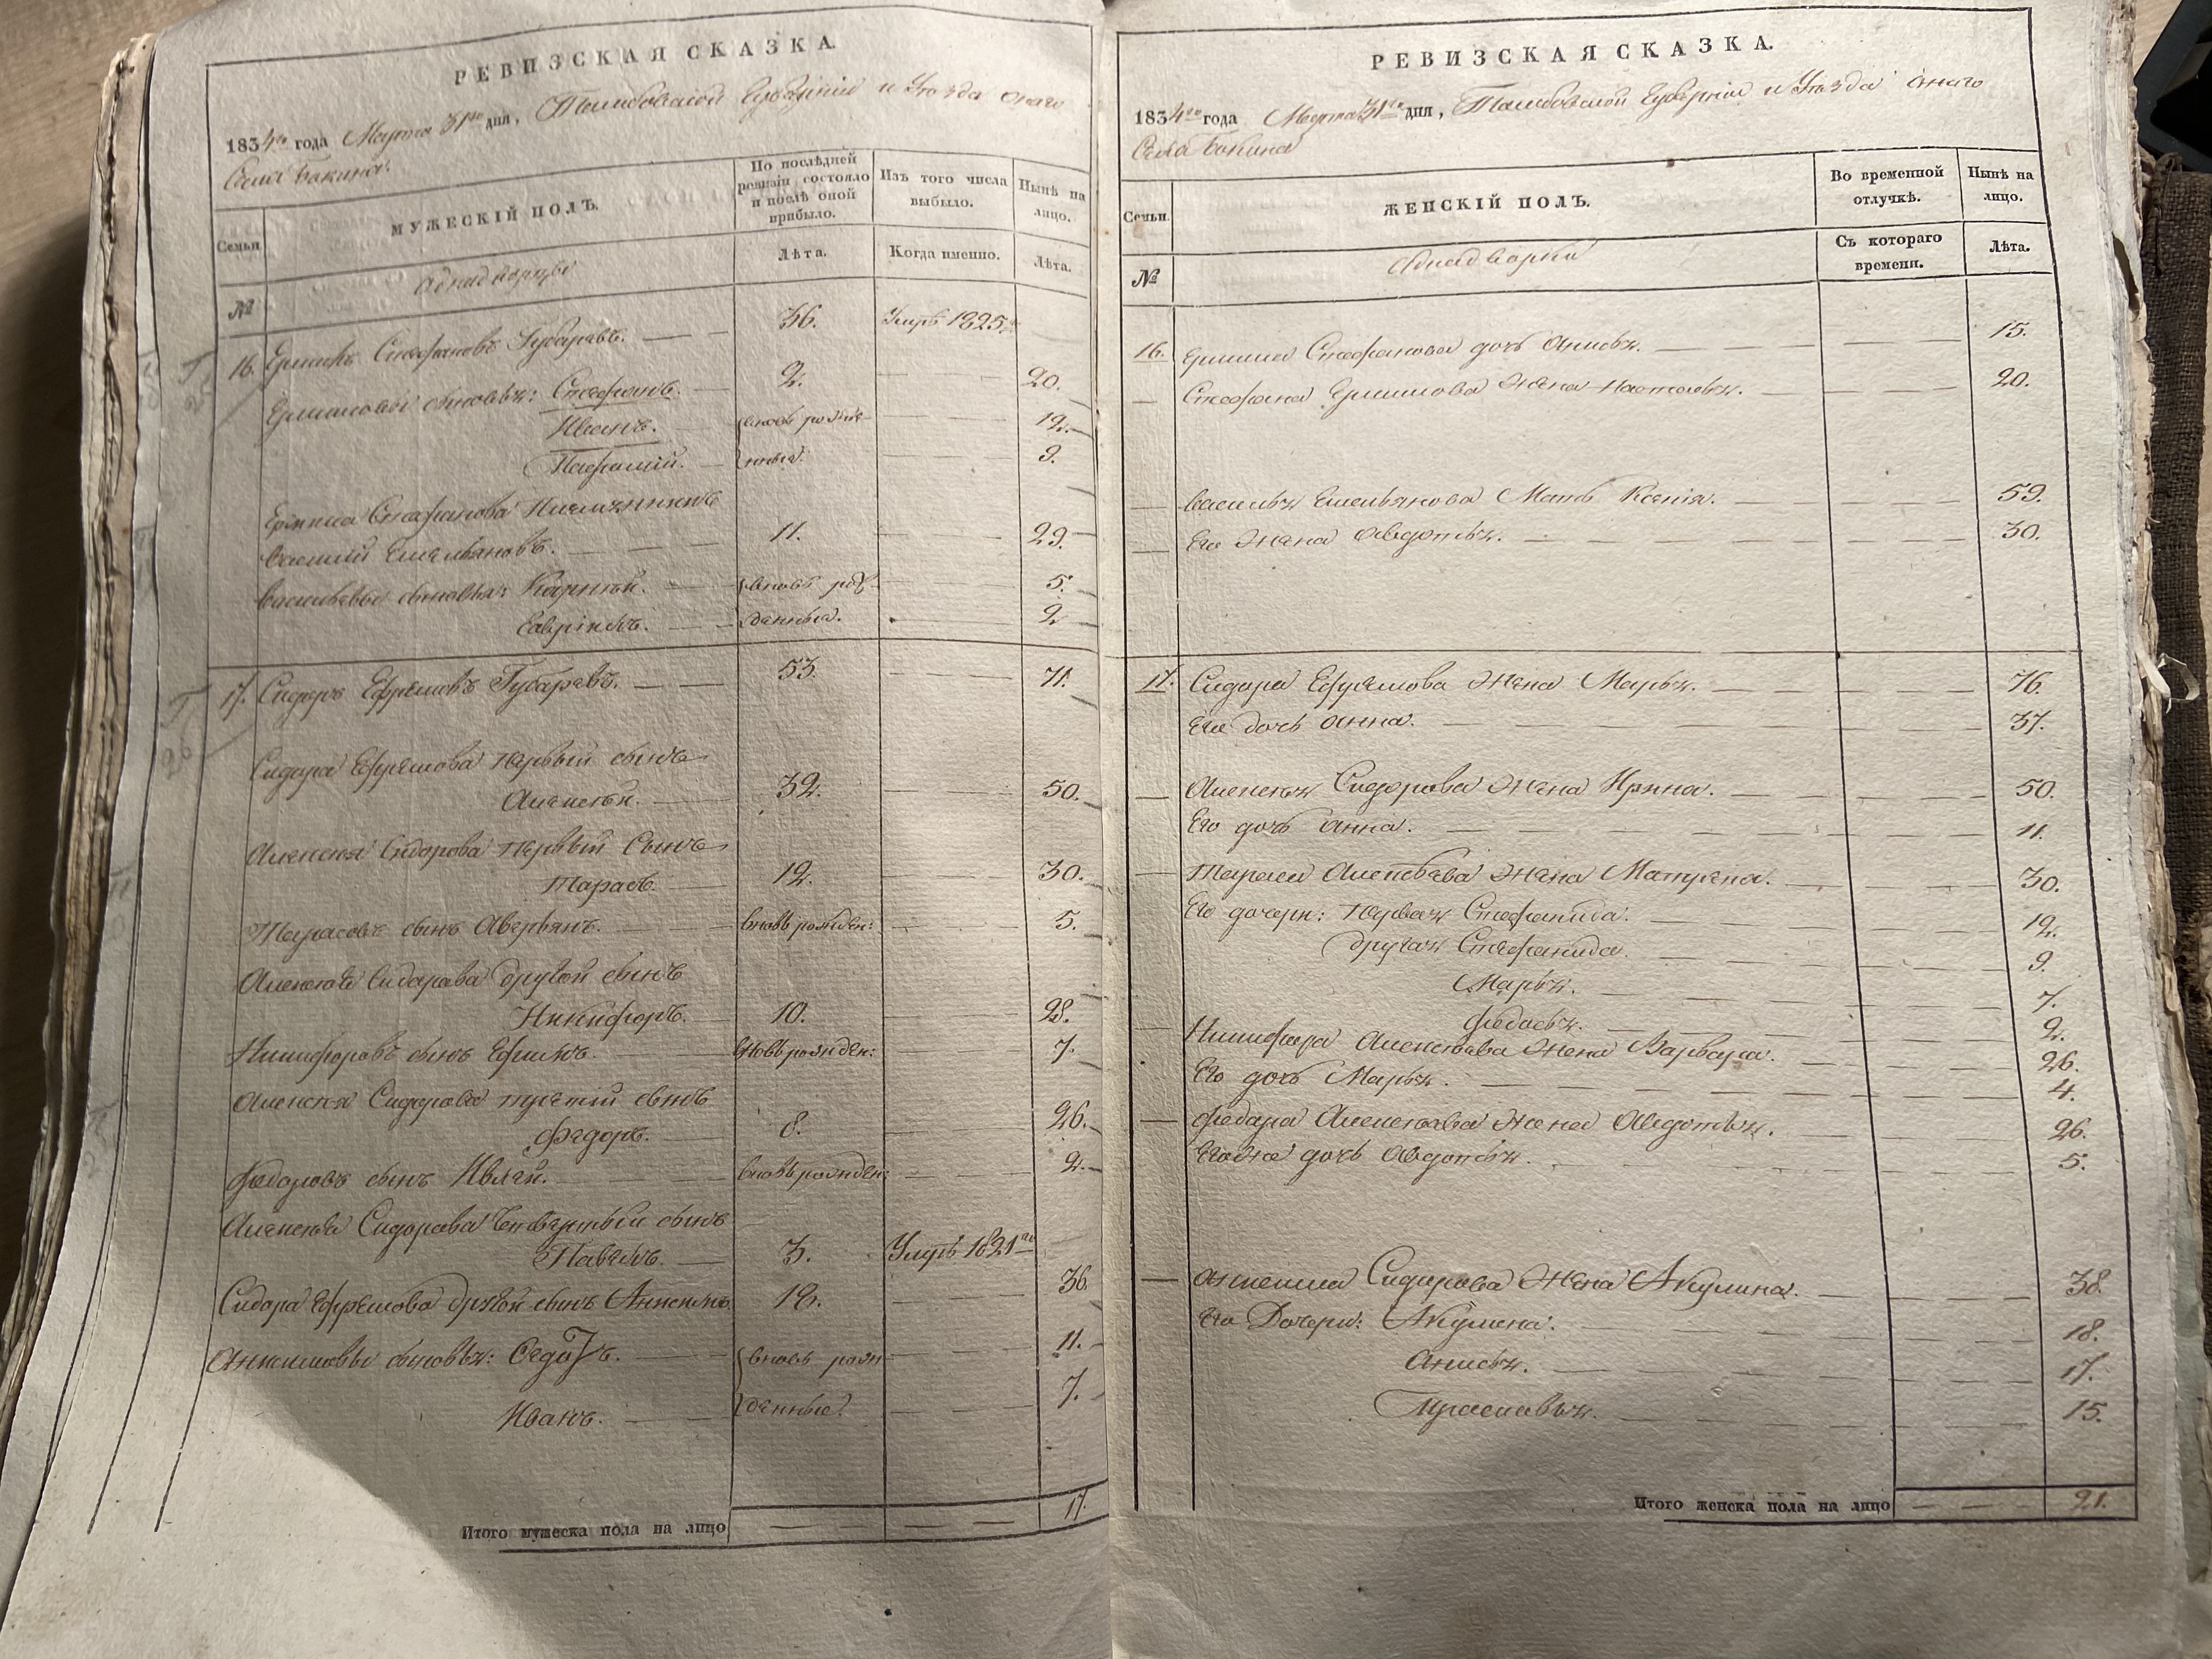 РЕВИЗСКАЯ СКАЗКА.
1834го года Марта 31го дня, Тамбовской Губерніи и Уезда онаго
Села Бокина.
Семьи.
МУЖЕСКІЙ ПОЛЪ.
По послѣдней ревизіи состояло и послѣ оной прибыло.
Изъ того числа выбыло.
Нынѣ на лицо.
№
Аднадворцы
Лѣта.
Когда именно.
Лѣта.
16. Ермилъ Стефановъ Губаревъ. 36. Умръ 1825го
Ермиловы сыновья: Стефанъ. 2. 20.
Иванъ. вновь рожде- 12.
Пафатій. нныя. 9.
Ермила Стефанова Племянникъ
Василій Емельяновъ. 11. 29.
Васильевы сыновья: Карнѣй. вновь рож- 5.
Гаврілъ. денныя. 2
17. Сидоръ Ефремовъ Губаревъ. 53. 71.
Сидора Ефремова первый сынъ
Алексѣй. 32. 50.
Алексея Сидорова первый Сынъ
Тарасъ. 12. 30.
Тарасовъ сынъ Аверьянъ. вновь рожден: 5.
Алексея Сидарава другой сынъ
Никифоръ. 10. 28.
Никифоровъ сынъ Ефимъ. вновь рожден: 7.
Алексея Сидорова третій сынъ
Федоръ. 8. 26.
Федоровъ сынъ Ивлей. вновь рожден: 2.
Алексея Сидорова Четвертый сынъ
Павелъ. 3. Умръ 1821го
Сидора Ефремова другой сынъ Анкинъ. 18. 36
Анкимовы сыновья: Седотъ. вновь рож 11.
Иванъ. денные. 7.
Итого мужеска пола на лицо 17.
РЕВИЗСКАЯ СКАЗКА.
1834го года Марта 31го дня, Тамбовской Губерніи и Уезда онаго
Села Бокина
Семьи.
ЖЕНСКІЙ ПОЛЪ.
Во временной отлучкѣ.
Нынѣ на лицо.
№
Аднадворки
Съ котораго времени.
Лѣта.
16. Ермила Стефанова дочь Анисья. 15.
Стефана Ермилова жена Наталья. 20.
Василья Емельянова Мать Ксенія. 59.
Его жена Авдотья. 30.
17. Сидара Ефремова жена Марья. 76.
Его дочь Анна. 37.
Алексея Сидорова жена Ирина. 50.
Его дочь Анна. 11.
Тараса Алексеева жена Матрена. 30.
Его дочери: первая Стефанида. 12.
другая Стефанида. 9.
Марья. 7.
Федосья. 2.
Никифора Алексеева жена Варвара. 26.
Его дочь Марья. 4.
Федара Алексеева жена Авдотья. 26.
Егоже дочь Авдотья. 5.
Анкима Сидорова жена Акулина. 38.
Его Дочери: Акулина. 18.
Анисья. 17.
Прасковья. 15.
Итого женска пола на лицо 21.